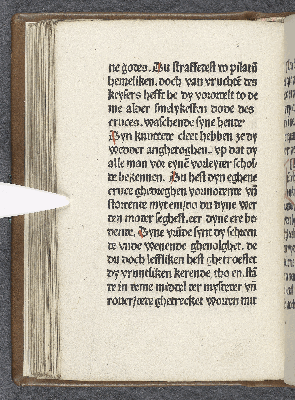 ne godes. Du straffetest vo pilatū
hemeliken. doch van vruchtē des
keysers hefft he dy vorordelt to de
me alder smelykesten dode des
cruces. waschende syne hende
Dyn knuttede cleet hebben ze dy
wedder anghetoghen. vp dat dy
alle man vor eynē vorleyder schol
de bekennen. Du hest dyn eghene
cruce ghedreghen vornodende vñ
storende myt em/do du dyne wer
den moder seghest. er dyne ere be
Dyne vründe synt dy schreen
de vnde wenende ghevolghet. de
du doch lefliken hest ghetroestet
dy vruntliken kerende tho en. stā
de in deme middel der mysdeder vñ
rouer/ ghetrecket worden mit